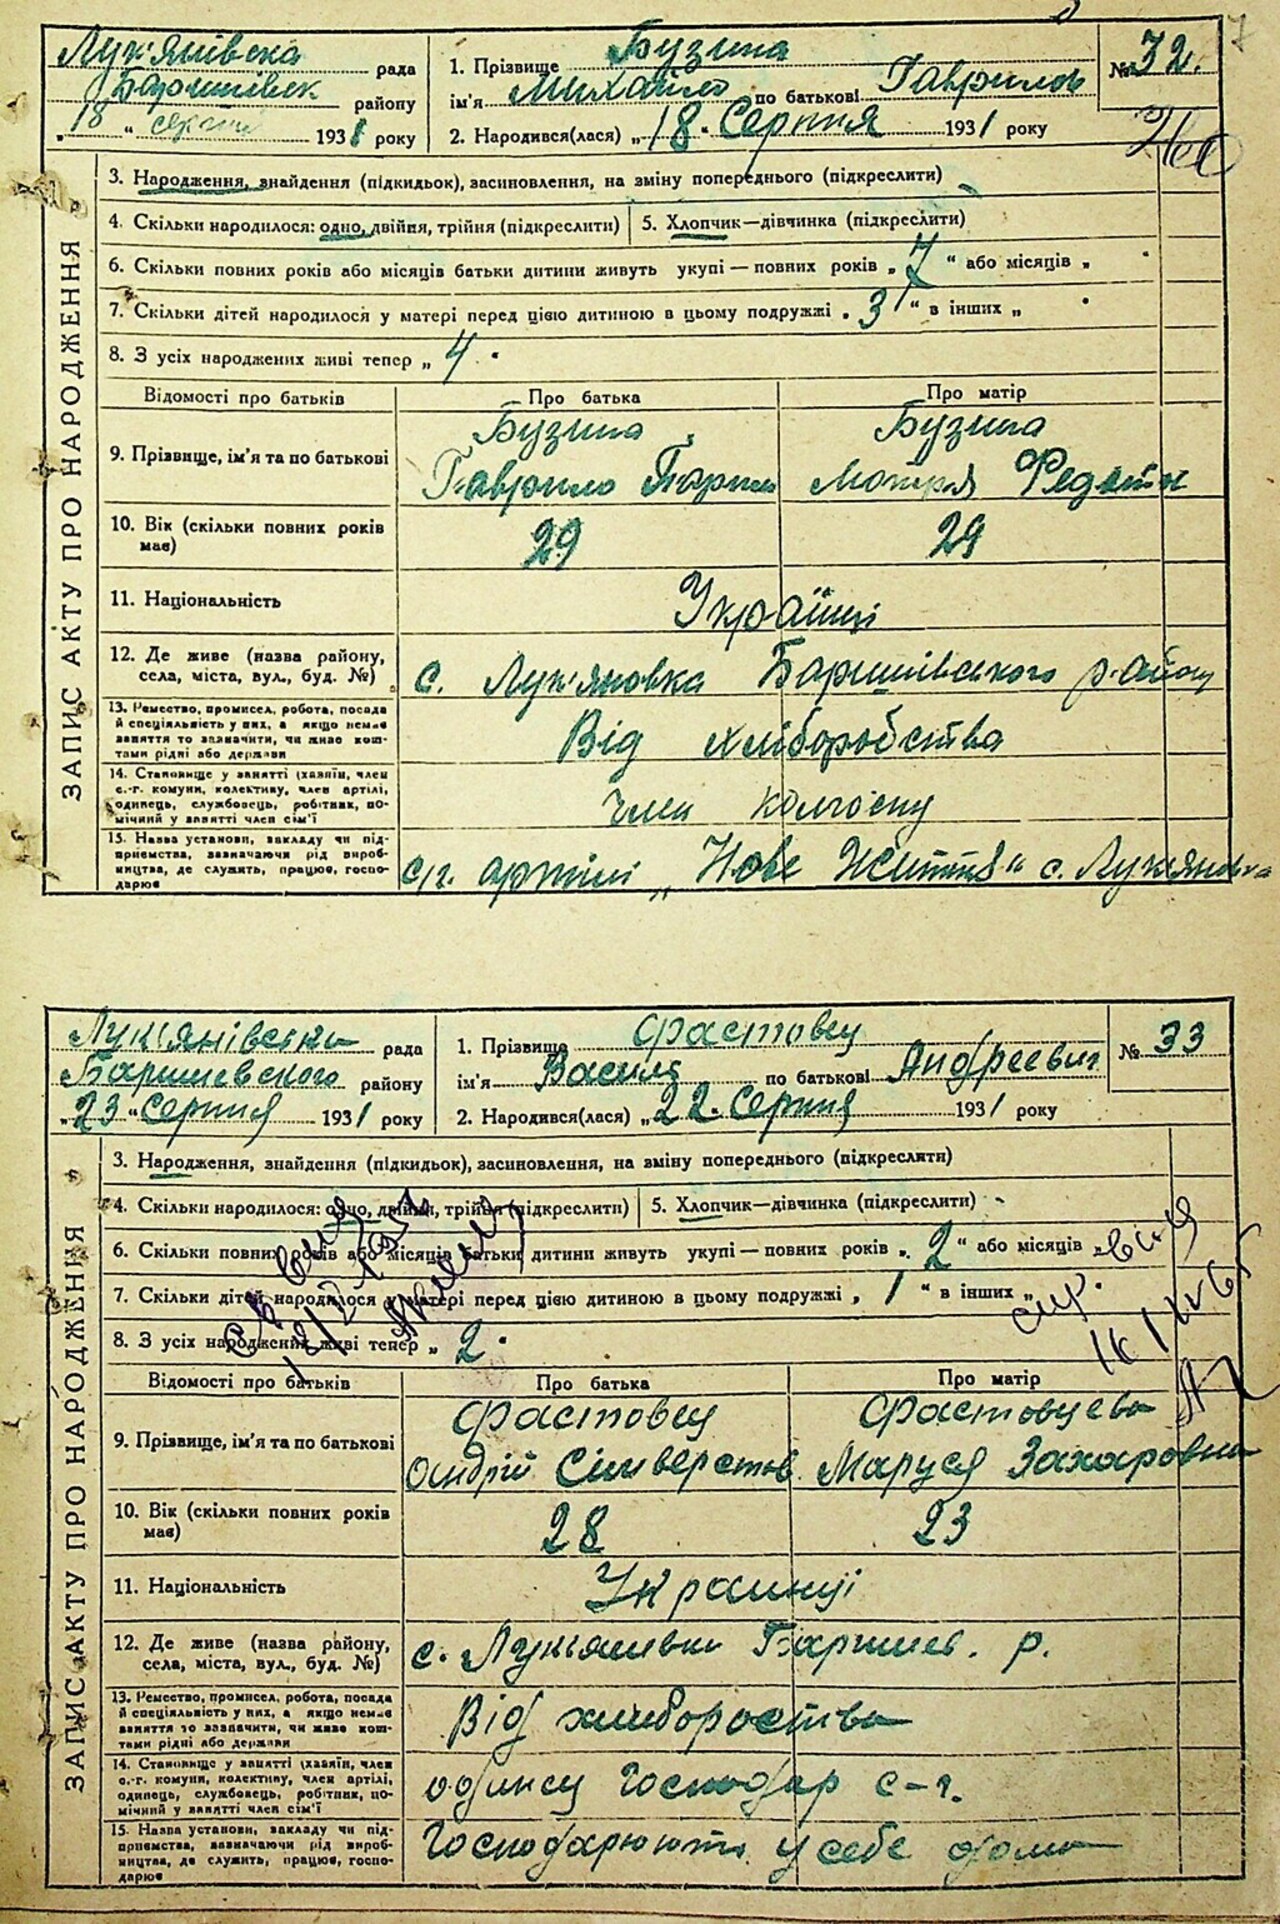 7
Лук'янівска рада
Баришівск району
„18" серпня 1931 року
1. Прізвище Бузина
ім'я Михайло по батькові Гаврилов
2. Народився(лася) „18" Серпня 1931 року
№ 32.
ЗАПИС АКТУ ПРО НАРОДЖЕННЯ
3. Народження, знайдення (підкидьок), засиновлення, на зміну попереднього (підкреслити)
4. Скільки народилося: одно, двійня, трійня (підкреслити)
5. Хлопчик—дівчинка (підкреслити)
6. Скільки повних років або місяців батьки дитини живуть укупі — повних років „ 7 " або місяців „
7. Скільки дітей народилося у матері перед цією дитиною в цьому подружжі „ 3 " в інших „
8. З усіх народжених живі тепер „ 4
Відомості про батьків
Про батька
Про матір
9. Прізвище, ім'я та по батькові
Бузина
Гаврило
Бузина
Мотря
10. Вік (скільки повних років має)
29
29
11. Національність
Українці
12. Де живе (назва району,
села, міста, вул., буд. №)
с. Лук'яновка Баришівського району
13. Ремество, промисел, робота, посада
й спеціяльність у них, а якщо немає
заняття то зазначити, чи живе кош-
тами рідні або держави
Від хліборобства
14. Становище у занятті (хазяїн, член
с.-г. комуни, колективу, член артілі,
одинець, службовець, робітник, по-
мічний у занятті член сім'ї
член колгоспу
15. Назва установи, закладу чи під-
приємства, зазначаючи рід вироб-
ництва, де служить, працює, госпо-
дарює
с/г. артілі „Нове Життя" с. Лук'яновка
Лук'янівска рада
Баришевского району
„23" Серпня 1931 року
1. Прізвище Фастовец
ім'я Василь по батькові Андреевич
2. Народився(лася) „22. Серпня 1931 року
№ 33
ЗАПИС АКТУ ПРО НАРОДЖЕННЯ
3. Народження, знайдення (підкидьок), засиновлення, на зміну попереднього (підкреслити)
4. Скільки народилося: одно, двійня, трійня (підкреслити)
5. Хлопчик—дівчинка (підкреслити)
6. Скільки повних років або місяців батьки дитини живуть укупі — повних років „ 2 " або місяців „
7. Скільки дітей народилося у матері перед цією дитиною в цьому подружжі „ 1 " в інших „
8. З усіх народжених живі тепер „ 2
Відомості про батьків
Про батька
Про матір
9. Прізвище, ім'я та по батькові
Фастовец
Андрій Сілверстов
Фастовцева
Маруся Захаровна
10. Вік (скільки повних років має)
28
23
11. Національність
Украинці
12. Де живе (назва району,
села, міста, вул., буд. №)
с. Лукянивки Баришев. р.
13. Ремество, промисел, робота, посада
й спеціяльність у них, а якщо немає
заняття то зазначити, чи живе кош-
тами рідні або держави
Від хлибороства
14. Становище у занятті (хазяїн, член
с.-г. комуни, колективу, член артілі,
одинець, службовець, робітник, по-
мічний у занятті член сім'ї
одинец господар с-г.
15. Назва установи, закладу чи під-
приємства, зазначаючи рід вироб-
ництва, де служить, працює, госпо-
дарює
Господарюють у себе дома